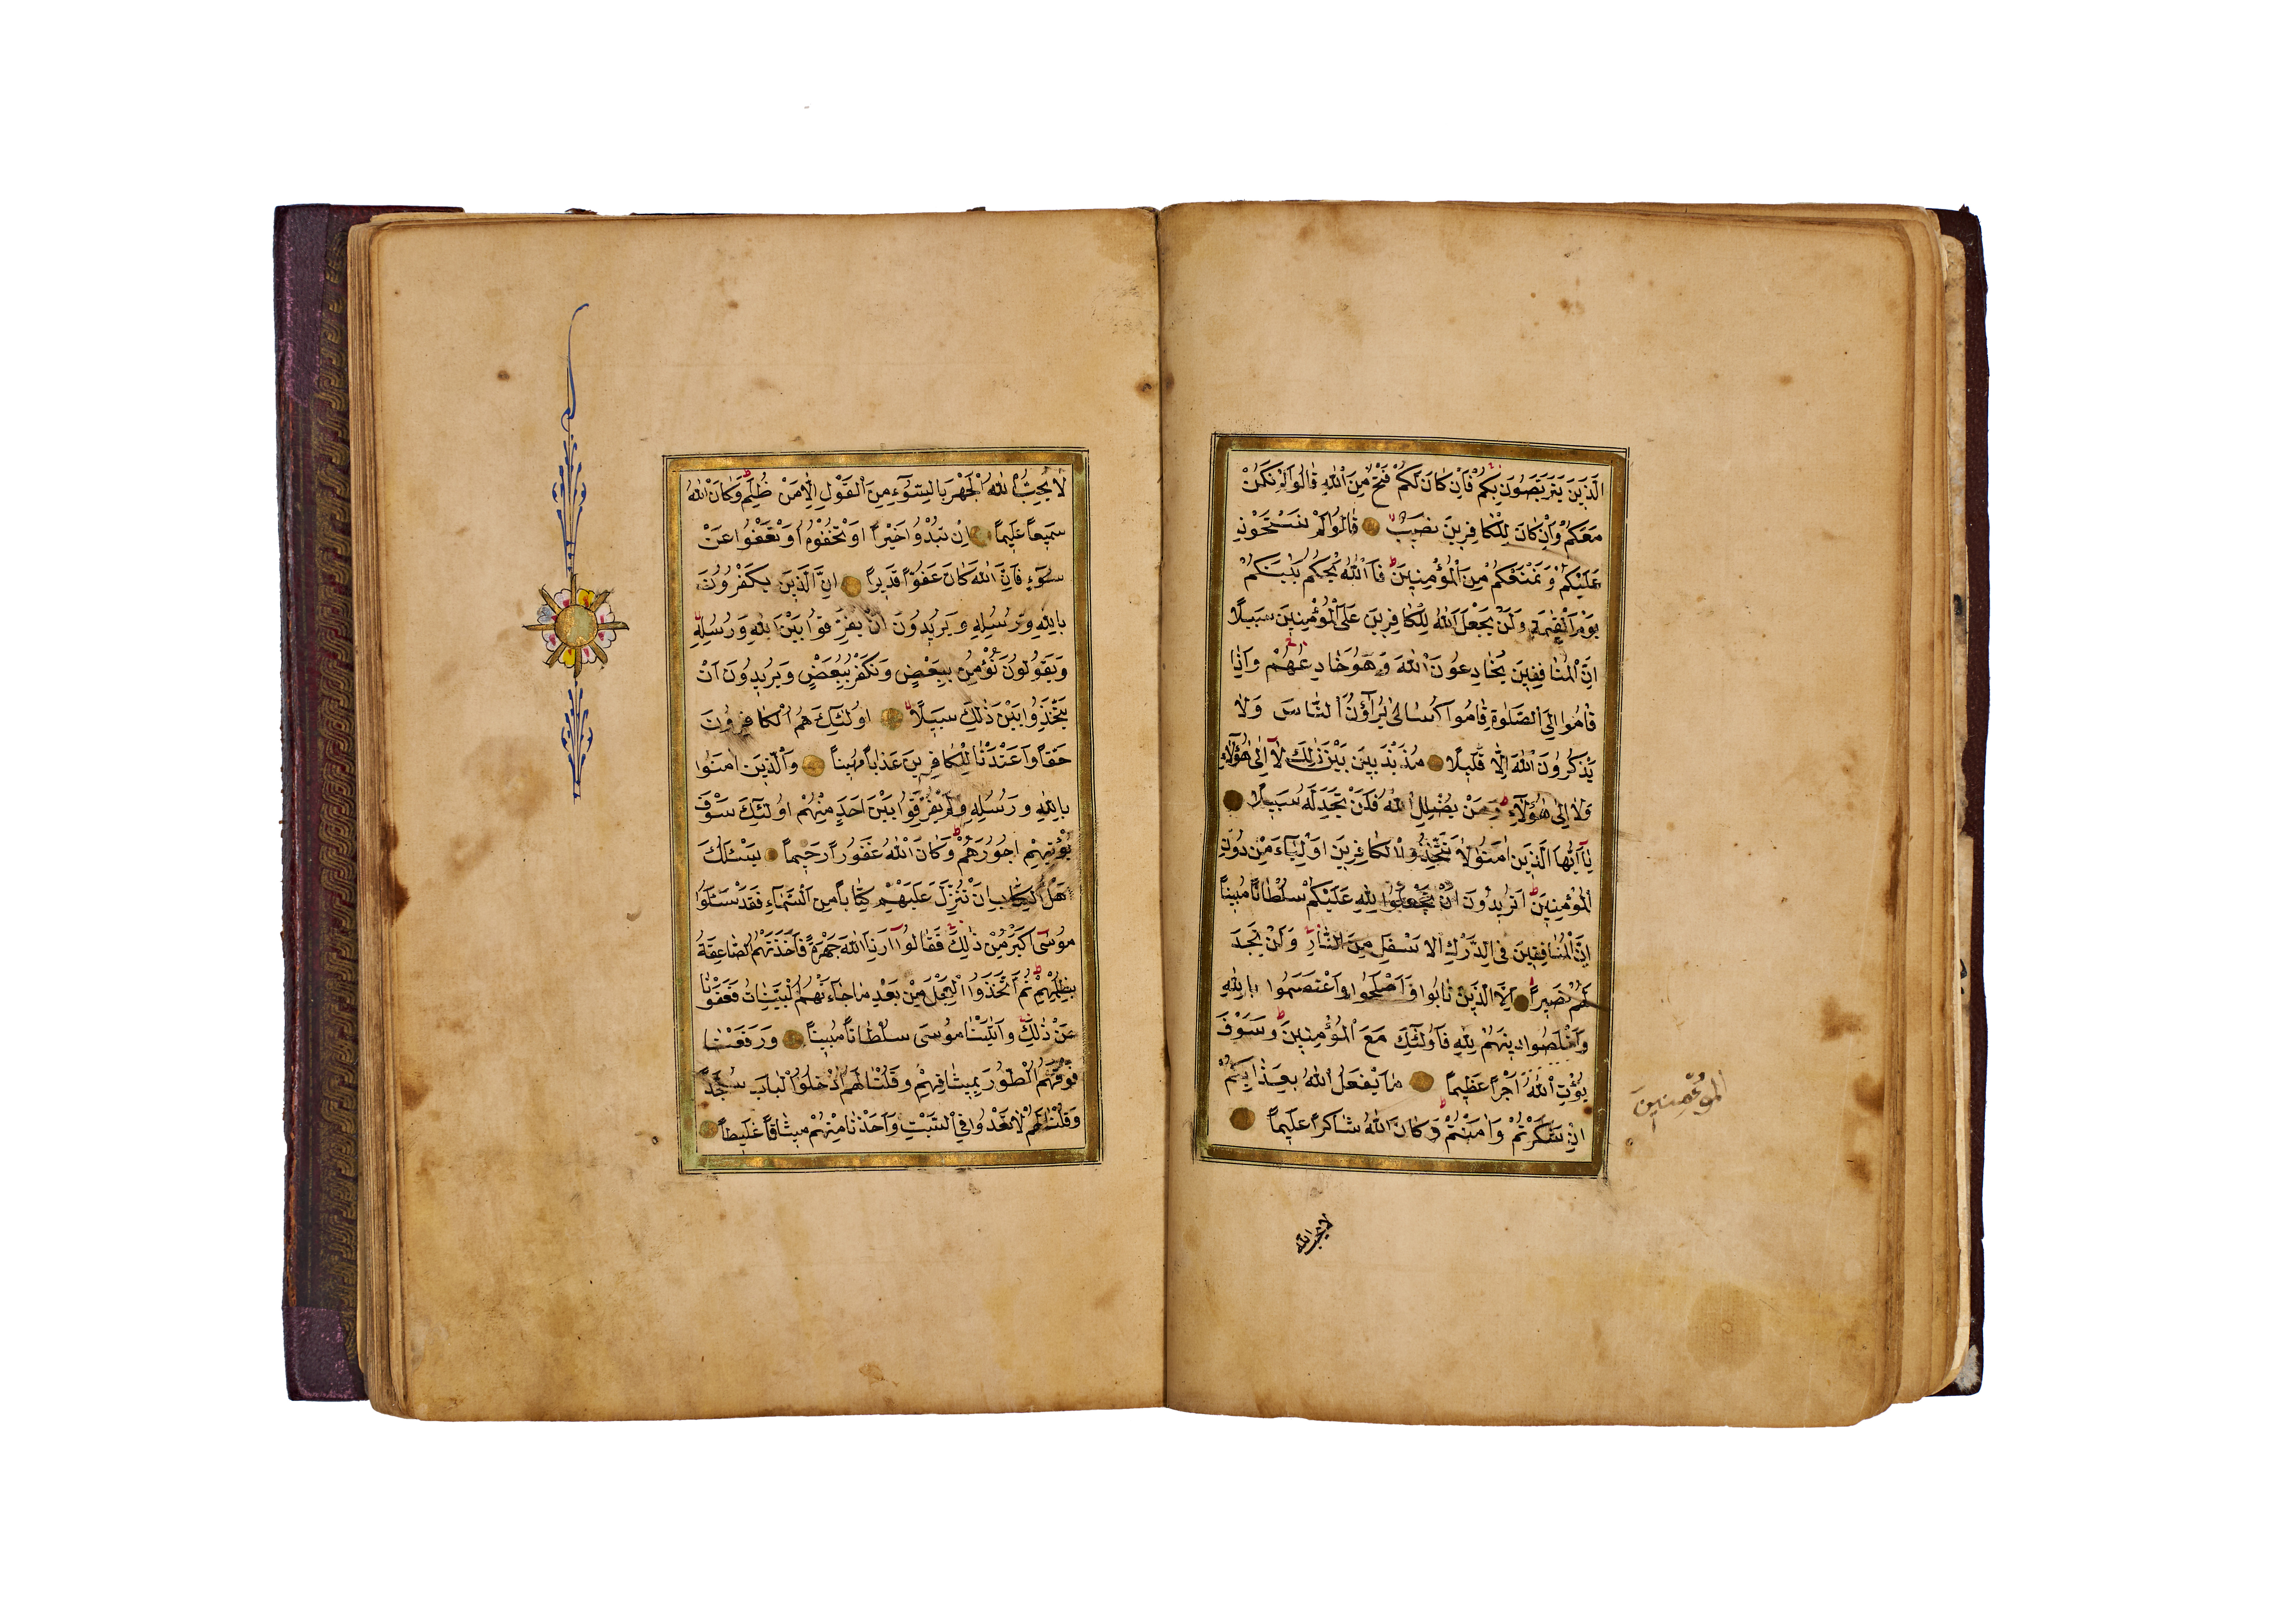 الَّذِينَ يَتَرَبَّصُونَ بِكُمْ فَاِنْ كَانَ لَكُمْ فَتْحٌ مِنَ اللّٰهِ قَالُوا اَلَمْ نَكُنْ
مَعَكُمْ وَاِنْ كَانَ لِلْكَافِرِينَ نَصِيبٌ قَالُوا اَلَمْ نَسْتَحْوِذْ
عَلَيْكُمْ وَنَمْنَعْكُمْ مِنَ الْمُؤْمِنِينَ فَاللّٰهُ يَحْكُمُ بَيْنَكُمْ
يَوْمَ الْقِيٰمَةِ وَلَنْ يَجْعَلَ اللّٰهُ لِلْكَافِرِينَ عَلَى الْمُؤْمِنِينَ سَبِيلًا
اِنَّ الْمُنَافِقِينَ يُخَادِعُونَ اللّٰهَ وَهُوَ خَادِعُهُمْ وَاِذَا
قَامُوا اِلَى الصَّلٰوةِ قَامُوا كُسَالٰى يُرَآؤُنَ النَّاسَ وَلَا
يَذْكُرُونَ اللّٰهَ اِلَّا قَلِيلًا مُذَبْذَبِينَ بَيْنَ ذٰلِكَ لَا اِلٰى هٰؤُلَاءِ
وَلَا اِلٰى هٰؤُلَاءِ وَمَنْ يُضْلِلِ اللّٰهُ فَلَنْ تَجِدَ لَهُ سَبِيلًا
يَا اَيُّهَا الَّذِينَ اٰمَنُوا لَا تَتَّخِذُوا الْكَافِرِينَ اَوْلِيَاءَ مِنْ دُونِ
الْمُؤْمِنِينَ اَتُرِيدُونَ اَنْ تَجْعَلُوا لِلّٰهِ عَلَيْكُمْ سُلْطَانًا مُبِينًا
اِنَّ الْمُنَافِقِينَ فِي الدَّرْكِ الْاَسْفَلِ مِنَ النَّارِ وَلَنْ تَجِدَ
لَهُمْ نَصِيرًا اِلَّا الَّذِينَ تَابُوا وَاَصْلَحُوا وَاعْتَصَمُوا بِاللّٰهِ
وَاَخْلَصُوا دِينَهُمْ لِلّٰهِ فَاُولٰئِكَ مَعَ الْمُؤْمِنِينَ وَسَوْفَ
يُؤْتِ اللّٰهُ اَجْرًا عَظِيمًا مَا يَفْعَلُ اللّٰهُ بِعَذَابِكُمْ
اِنْ شَكَرْتُمْ وَاٰمَنْتُمْ وَكَانَ اللّٰهُ شَاكِرًا عَلِيمًا
الْمُؤْمِنِينَ
لا يحب الله
لَا يُحِبُّ اللّٰهُ الْجَهْرَ بِالسُّوٓءِ مِنَ الْقَوْلِ اِلَّا مَنْ ظُلِمَ وَكَانَ اللّٰهُ
سَمِيعًا عَلِيمًا اِنْ تُبْدُوا خَيْرًا اَوْ تُخْفُوهُ اَوْ تَعْفُوا عَنْ
سُوٓءٍ فَاِنَّ اللّٰهَ كَانَ عَفُوًّا قَدِيرًا اِنَّ الَّذِينَ يَكْفُرُونَ
بِاللّٰهِ وَرُسُلِهِ وَيُرِيدُونَ اَنْ يُفَرِّقُوا بَيْنَ اللّٰهِ وَرُسُلِهِ
وَيَقُولُونَ نُؤْمِنُ بِبَعْضٍ وَنَكْفُرُ بِبَعْضٍ وَيُرِيدُونَ اَنْ
يَتَّخِذُوا بَيْنَ ذٰلِكَ سَبِيلًا اُولٰئِكَ هُمُ الْكَافِرُونَ
حَقًّا وَاَعْتَدْنَا لِلْكَافِرِينَ عَذَابًا مُهِينًا وَالَّذِينَ اٰمَنُوا
بِاللّٰهِ وَرُسُلِهِ وَلَمْ يُفَرِّقُوا بَيْنَ اَحَدٍ مِنْهُمْ اُولٰئِكَ سَوْفَ
يُؤْتِيهِمْ اُجُورَهُمْ وَكَانَ اللّٰهُ غَفُورًا رَحِيمًا يَسْئَلُكَ
اَهْلُ الْكِتَابِ اَنْ تُنَزِّلَ عَلَيْهِمْ كِتَابًا مِنَ السَّمَاءِ فَقَدْ سَئَلُوا
مُوسٰى اَكْبَرَ مِنْ ذٰلِكَ فَقَالُوا اَرِنَا اللّٰهَ جَهْرَةً فَاَخَذَتْهُمُ الصَّاعِقَةُ
بِظُلْمِهِمْ ثُمَّ اتَّخَذُوا الْعِجْلَ مِنْ بَعْدِ مَا جَاءَتْهُمُ الْبَيِّنَاتُ فَعَفَوْنَا
عَنْ ذٰلِكَ وَاٰتَيْنَا مُوسٰى سُلْطَانًا مُبِينًا وَرَفَعْنَا
فَوْقَهُمُ الطُّورَ بِمِيثَاقِهِمْ وَقُلْنَا لَهُمُ ادْخُلُوا الْبَابَ سُجَّدًا
وَقُلْنَا لَهُمْ لَا تَعْدُوا فِي السَّبْتِ وَاَخَذْنَا مِنْهُمْ مِيثَاقًا غَلِيظًا